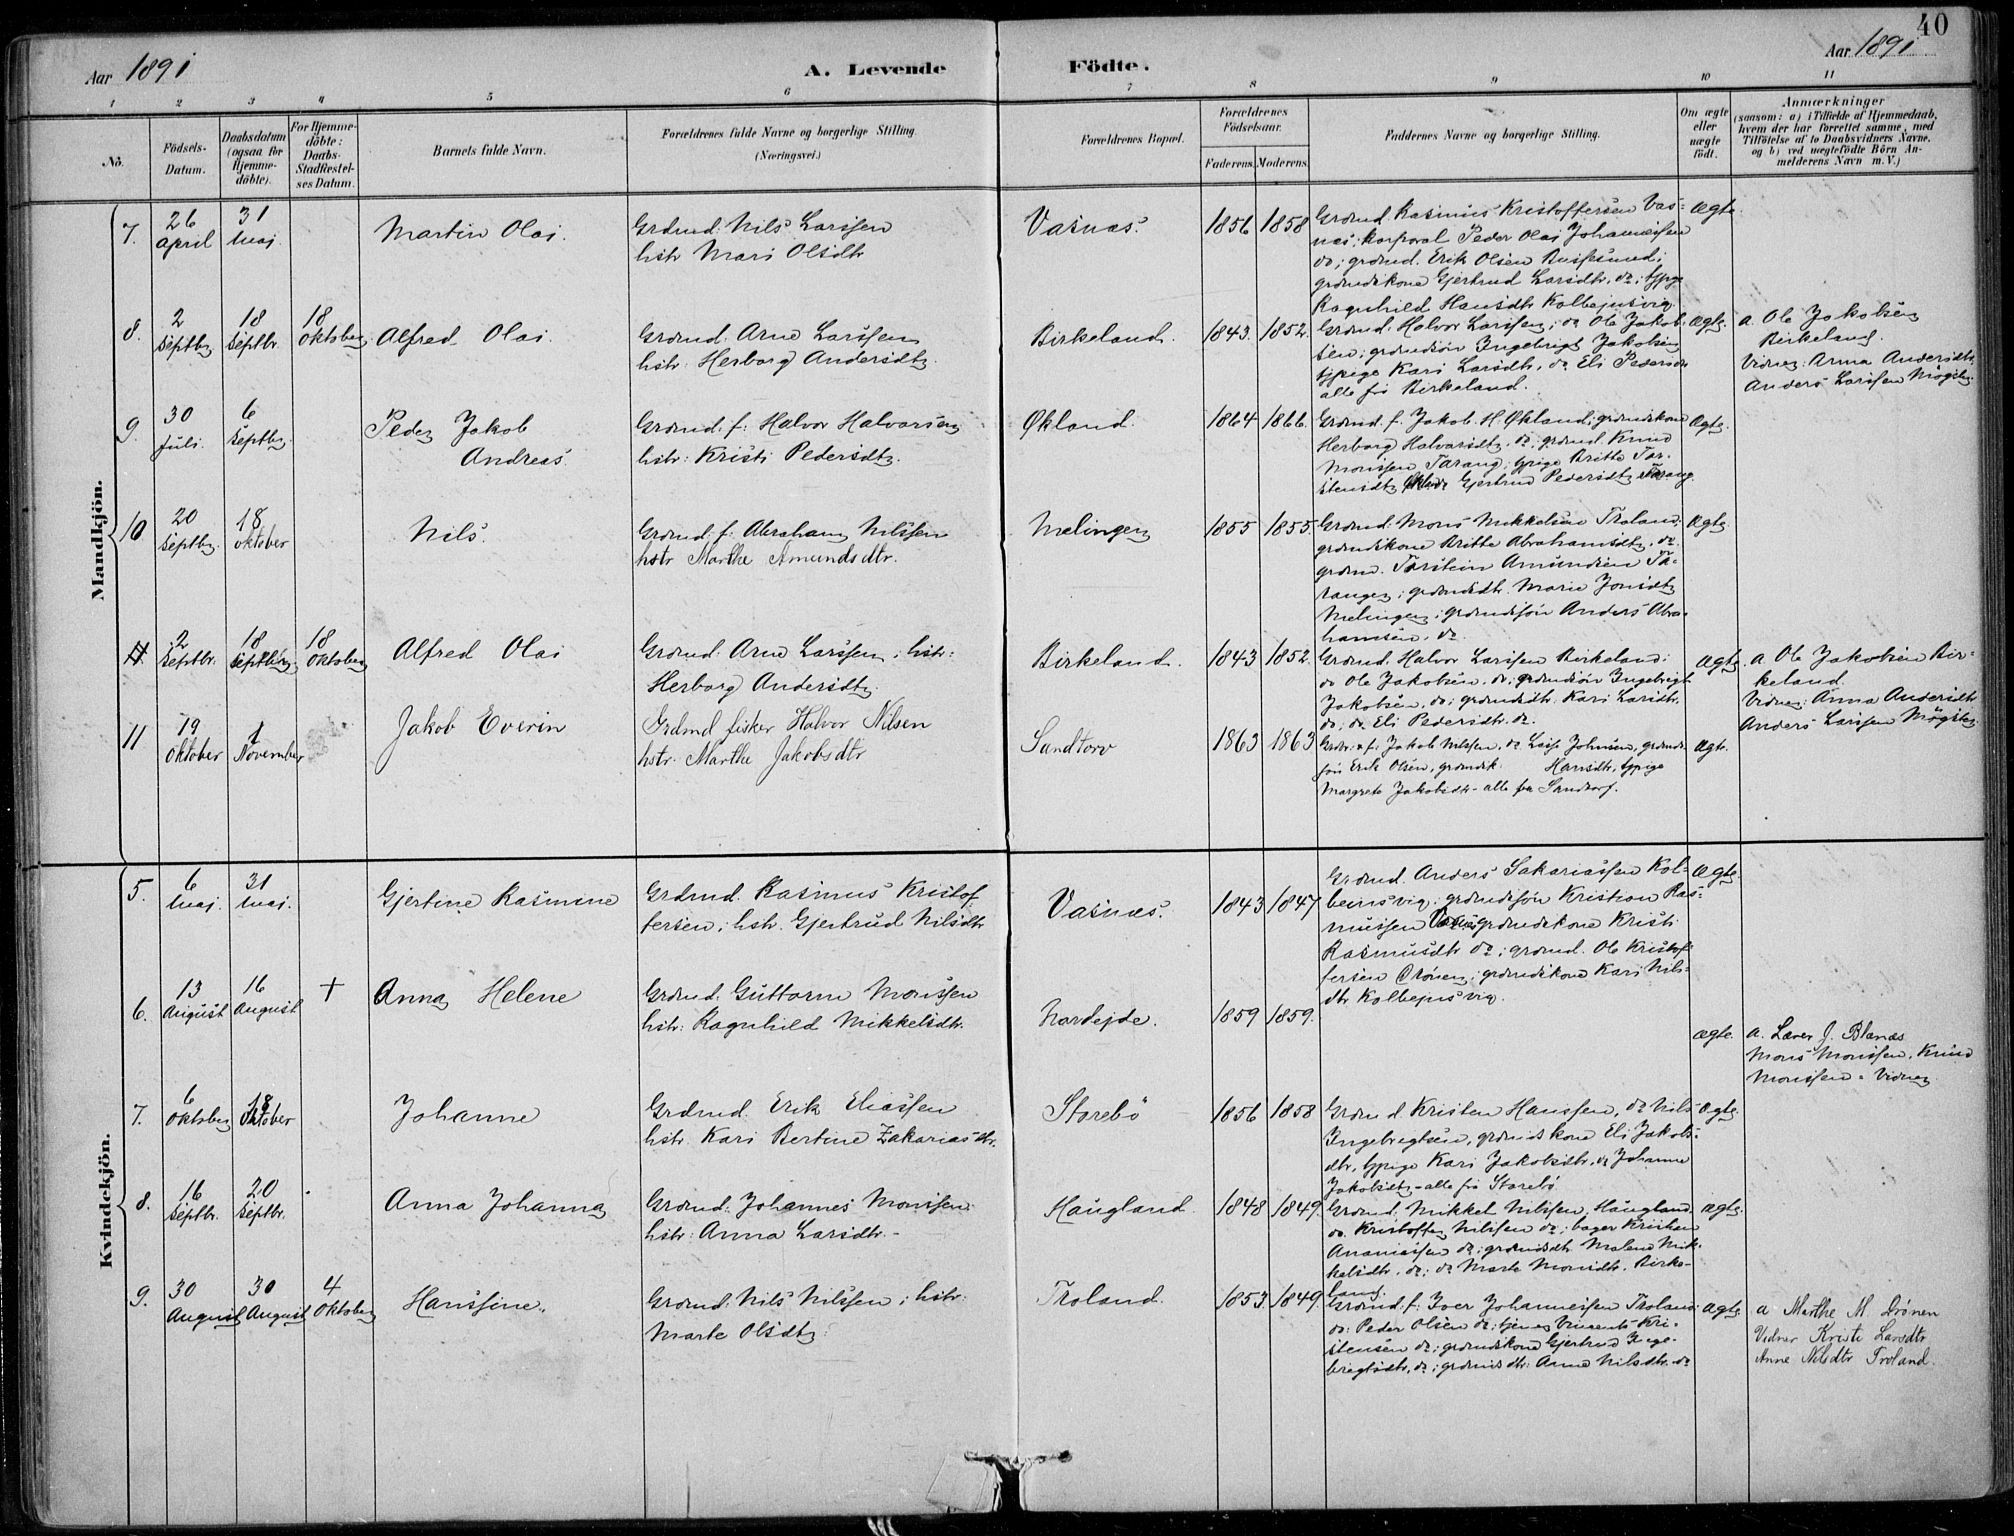 40
Aar 1891
A. Levende Födte.
Aar 1891
1 2 3 4 5 6 7 8 9 10 11
No.
Födsels-
Datum.
Daabsdatum
(ogsaa for
Hjemme-
döbte).
For Hjemme-
döbte:
Daabs-
Stadfæstel-
ses Datum.
Barnets fulde Navn.
Forældrenes fulde Navne og borgerlige Stilling.
(Næringsvei.)
Forældrenes Bopæl.
Forældrenes
Födselsaar.
Faderens. Moderens.
Faddernes Navne og borgerlige Stilling.
Om ægte
eller
uægte
födt.
Anmærkninger
(saasom: a) i Tilfælde af Hjemmedaab,
hvem der har forrettet samme, med
Tilföielse af to Daabsvidners Navne,
og b) ved uægtefödte Börn An-
melderens Navn m. V.)
Mandkjön.
7.
26
April
31
Mai
Martin Olai.
Grdmd. Nils Larssen
hstr Mari Olsdtr
Vasnæs.
1856 1858
Grdmd. Rasmus Kristoffersen Vas-
næs; korporal Peder Olai Johannessen
do; grdmd. Erik Olsen
grdmdskone Gjertrud Larsdtr. do; tjpige
Ragnhild Hansdtr Kolbejnsvig.
Ægte.
8.
2
Septbr
18
Septbr.
18
oktober
Alfred Olai.
Grdmd. Arne Larssen
hstr: Herborg Andersdtr.
Birkeland.
1843. 1852.
Grdmd. Halvor Larssen; do Ole Jakob-
sen; grdmdsön Ingebrigt Jakobsen
tjpige Kari Larsdtr, do Eli Pedersdtr
alle fra Birkeland.
Ægte.
a. Ole Jakobsen
Birkeland.
Vidner: Anna Andersdtr.
Anders Larssen Mögster
9.
30
Juli.
6
Septbr
Peder Jakob
Andreas
Grdmd. f: Halvor Halvorsen
hstr: Kristi Pedersdtr.
Økland.
1864 1866.
Grdmd. f. Jakob H. Økland; grdmdskone
Herborg Halvorsdtr. do; grdmd. Knud
Monssen Tarang; tjpige Britte Tor-
stensdtr Økland Gjertrud Pedersdtr Tarang.
Ægte.
10
20
Septbr.
18
oktober
Nils.
Grdmd. f. Abraham Nilssen
hstr Marthe Amundsdtr.
Melingen
1855 1855.
Grdmd. Mons Mikkelsen Troland;
grdmdskone Britte Abrahamsdtr, do
grdmd. Torstein Amundsen Ta-
rangen; grdmdsdtr. Marie Jonsdtr
Melingen; grdmdsön Anders Abra-
hamsen, do
Ægte
11.
2
Septbr.
18
Septbr
18
oktober
Alfred Olai
Grdmd. Arne Larssen; hstr:
Herborg Andersdtr.
Birkeland.
1843 1852.
Grdmd. Halvor Larssen Birkeland;
do Ole Jakobsen, do; grdmdsön Ingebrigt
Jakobsen, do; grdmdsdtr. Kari Larsdtr.
do; do Eli Pedersdtr. do.
Ægte
a. Ole Jakobsen Bir-
keland.
Vidner: Anna Andersdtr
Anders Larssen Mögster
11
19
oktober
1
November
Jakob Everin
Grdmd fisker Halvor Nilsen
hstr. Marthe Jakobsdtr
Sandtorv
1863 1863
Grdm. f. Jakob Nilssen, do Johnsen, grdmds-
sön Erik Olsen, grdmdsk. Hansdtr, tjpige
Margrete Jakobsdtr. alle fra Sandtorf.
Ægte.
Kvindekjön.
5.
6
Mai.
31
Mai.
Gjertine Rasmine
Grdmd. Rasmus Kristof-
fersen; hstr. Gjertrud Nilsdtr
Vasnæs.
1843 1847
Grdmd. Anders Sakariassen Kol-
beinsvig; grdmdsön Kristian Ras-
mussen Vasnæs; grdmdskone Kristi
Rasmusdtr do; grdmd. Ole Kristof-
fersen Drönen; grdmdskone Kari Nils-
dtr Kolbejnsvig.
Ægte.
6.
13
August
16
August
+
Anna Helene
Grdmd. Guttorm Monssen
hstr: Ragnhild Mikkelsdtr.
Nordejde.
1859 1859.
Ægte.
a. Lærer J. Blænæs
Mons Monssen, Knud
Monssen = Vidner
7.
6
oktober
18
Oktober
Johanne
Grdmd. Erik Eliassen
hstr. Kari Bertine Zakariasdtr.
Storebö
1856 1858
Grdmd. Kristen Hanssen, do Nils
Ingebrigtsen, grdmdskone Eli Jakobs-
dtr, tjpige Kari Jakobsdtr, do Johanne
Jakobsdtr - alle fra Storebö
Ægte.
8.
16
Septbr.
20
Septbr.
Anna Johanna
Grdmd. Johannes Monssen
hstr: Anna Larsdtr.
Haugland.
1848 1849.
Grdmd. Mikkel Nilssen, Haugland.
do. Kristoffer Nilssen do; bager Kristian
Ananiassen do; grdmdsdtr Malene Mik-
kelsdtr, do; do Marte Monsdtr. Birke-
land.
Ægte.
9.
30
August
30
August
4
Oktober
Hanssine.
Grdmd. Nils Nilssen; hstr:
Marte Olsdtr.
Troland.
1853. 1849.
Grdmd. f: Iver Johannessen Troland;
do: Peder Olsen do; tjener Vincents Kri-
stensen do; grdmdskone Gjertrud Inge-
brigtsdtr. do; grdmdsdtr: Anne Nilsdtr. do
Ægte.
a Marthe M. Drönen
Vidner Kristi Larsdtr
Anne Nilsdtr Troland.